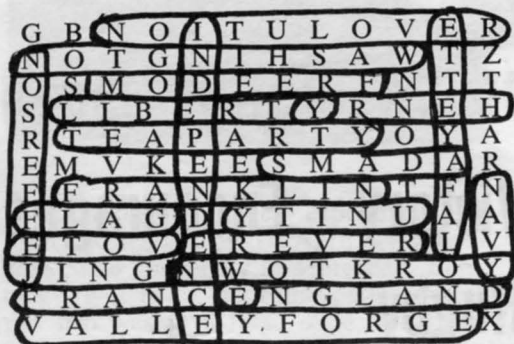 G B N O I T U L O V E R
N O T G N I H S A W T Z
O S M O D E E R F N T T
S L I B E R T Y R N E H
R T E A P A R T Y O Y A
E M V K E E S M A D A R
F F R A N K L I N T F N
F L A G D Y T I N U A A
E T O V E R E V E R L V
J I N G N W O T K R O Y
F R A N C E N G L A N D
V A L L E Y F O R G E X